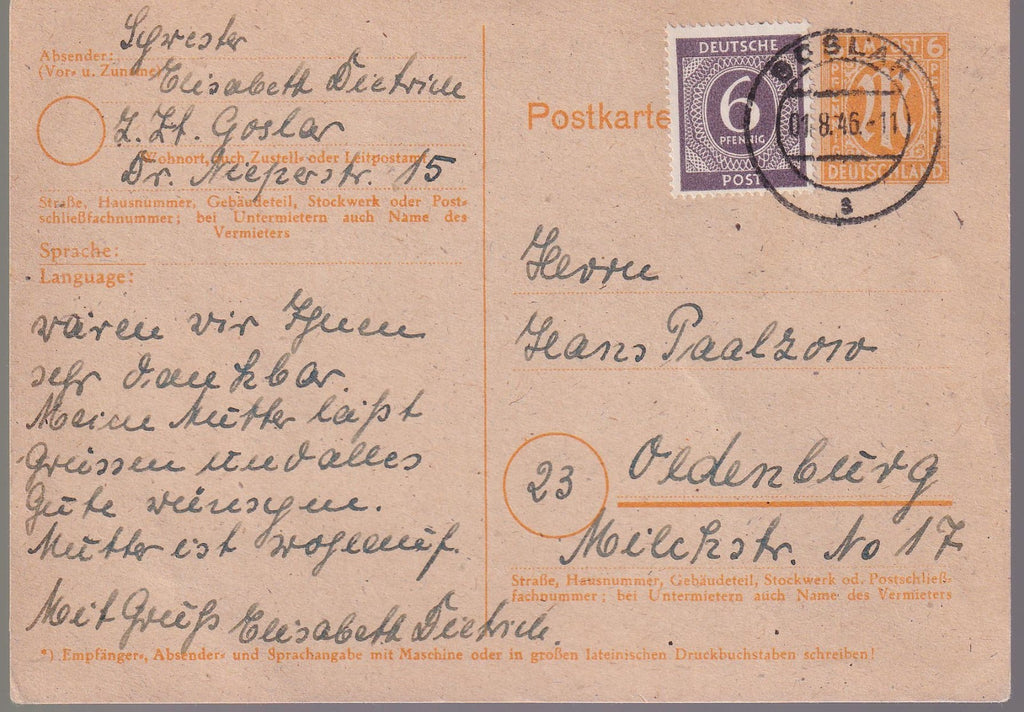 Absender: Schwester
(Vor- u. Zuname)
Elisabeth Dietrich
z. Zt. Goslar
Wohnort, auch Zustell- oder Leitpostamt
Dr. Nieperstr. 15
Straße, Hausnummer, Gebäudeteil, Stockwerk oder Post-
schließfachnummer; bei Untermietern auch Name des
Vermieters
Sprache:
Language:
wären wir Ihnen
sehr dankbar.
Meine Mutter läßt
Grüssen und alles
Gute wünschen.
Mutter ist wohlauf.
Mit Gruß Elisabeth Dietrich.
Postkarte
DEUTSCHE
6
PFENNIG
POST
GOSLAR
01.8.46.-11
s
POST 6
DEUTSCHLAND
Herrn
Hans Paalzow
23
Oldenburg
Milchstr. No 17
Straße, Hausnummer, Gebäudeteil, Stockwerk od. Postschließ-
fachnummer; bei Untermietern auch Name des Vermieters
*) Empfänger-, Absender- und Sprachangabe mit Maschine oder in großen lateinischen Druckbuchstaben schreiben!